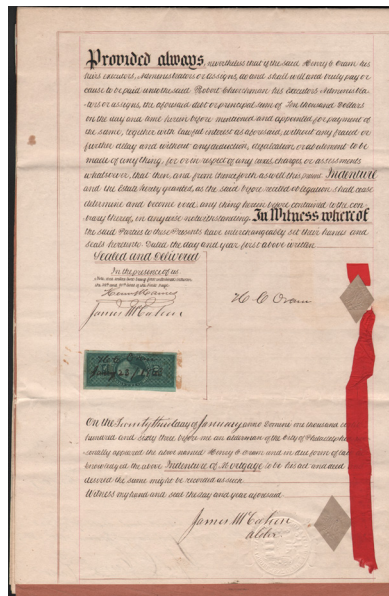 Provided always, nevertheless that if the said Henry C Oram his
heirs executors, Administrators or assigns, do and shall well and truly pay or
cause to be paid unto the said Robert Churchman his Executors Administra-
tors or assigns, the aforesaid debt or principal sum of Ten thousand Dollars
on the day and time herein before mentioned and appointed for payment of
the same, together with lawful interest as aforesaid, without any fraud or
further delay and without any deduction, defalcation or abatement to be
made of any thing, for or in respect of any taxes, charges or assessments
whatsoever, that then, and from thenceforth, as well this present Indenture
and the Estate hereby granted, as the said before recited obligation shall cease
determine and become void, any thing herein before contained to the con-
trary thereof, in any wise notwithstanding. In Witness whereof
the said Parties to these Presents have interchangeably set their hands and
seals hereunto. Dated the day and year first above written
Sealed and Delivered
In the presence of us
H C Oram
James McCahen
H C O
On the Twenty third day of January Anno Domini one thousand
hundred and sixty three before me an alderman of the City of Philadelphia
appeared the above named Henry C Oram and in due form of
the above Indenture of Mortgage to be his act and deed
desired the same might be recorded as such.
Witness my hand and seal the day and year aforesaid
James McCahen
Alder